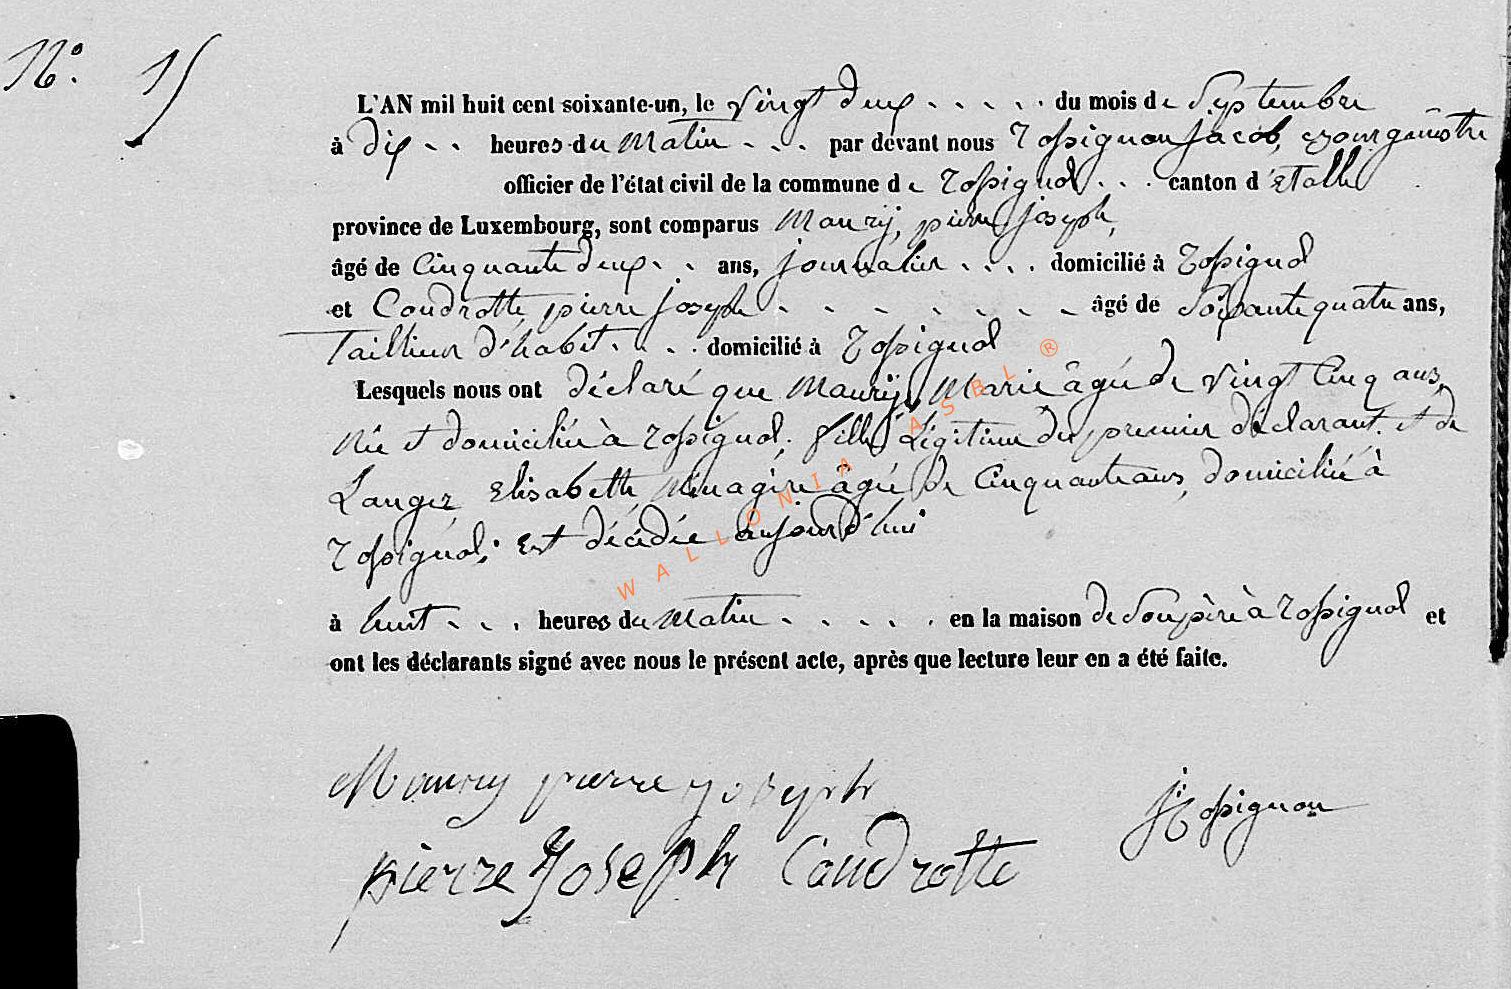 N° 15
L'AN mil huit cent soixante-un, le vingt deux du mois de Septembre
à dix heures du matin par devant nous Rossignon Jacob, Bourgmestre
officier de l'état civil de la commune de Rossignol canton d'Etalle
province de Luxembourg, sont comparus Maury, pierre joseph,
âgé de Cinquante deux ans, journalier domicilié à Rossignol
et Coudrotte pierre joseph âgé de Soixante quatre ans,
Tailleur d'habit domicilié à Rossignol
Lesquels nous ont déclaré que Maury, Marie âgée de vingt Cinq ans,
Née et domiciliée à Rossignol. fille Légitime du premier déclarant. et de
Elisabeth Ménagère âgée de Cinquante ans, domiciliée à
Rossignol; Est décédée aujourd'hui
à huit heures du matin en la maison de son père à Rossignol et
ont les déclarants signé avec nous le présent acte, après que lecture leur en a été faite.
WALLONIA ASBL ®
Maury pierre joseph
J Rossignon
pierre Joseph Coudrotte